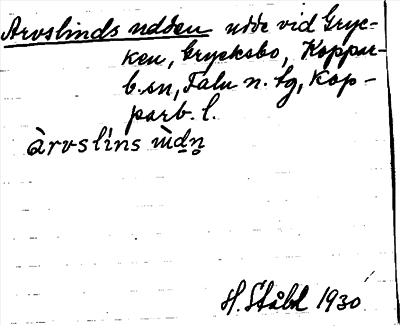 Arvslinds udden udde vid Gryc-
ken, Grycksbo, Koppar-
b. sn, Falu n. tg, Kop-
parb. l.
àrvslins ùḍn̥
H. Ståhl 1930